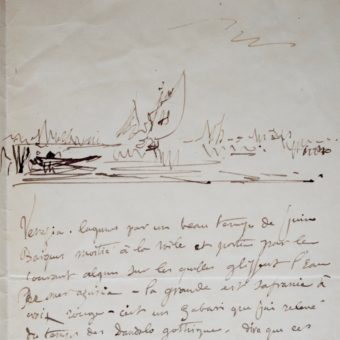 Venezia. lagunes par un beau temps de Juin
Barques montée à la voile et portée par le
courant algues sur les quelles glissent l'eau
mer – la grande est safranée à
croix rouge – c'est un Gabari que j'ai relevé
du temps des Dandolo gothique. dire que ces